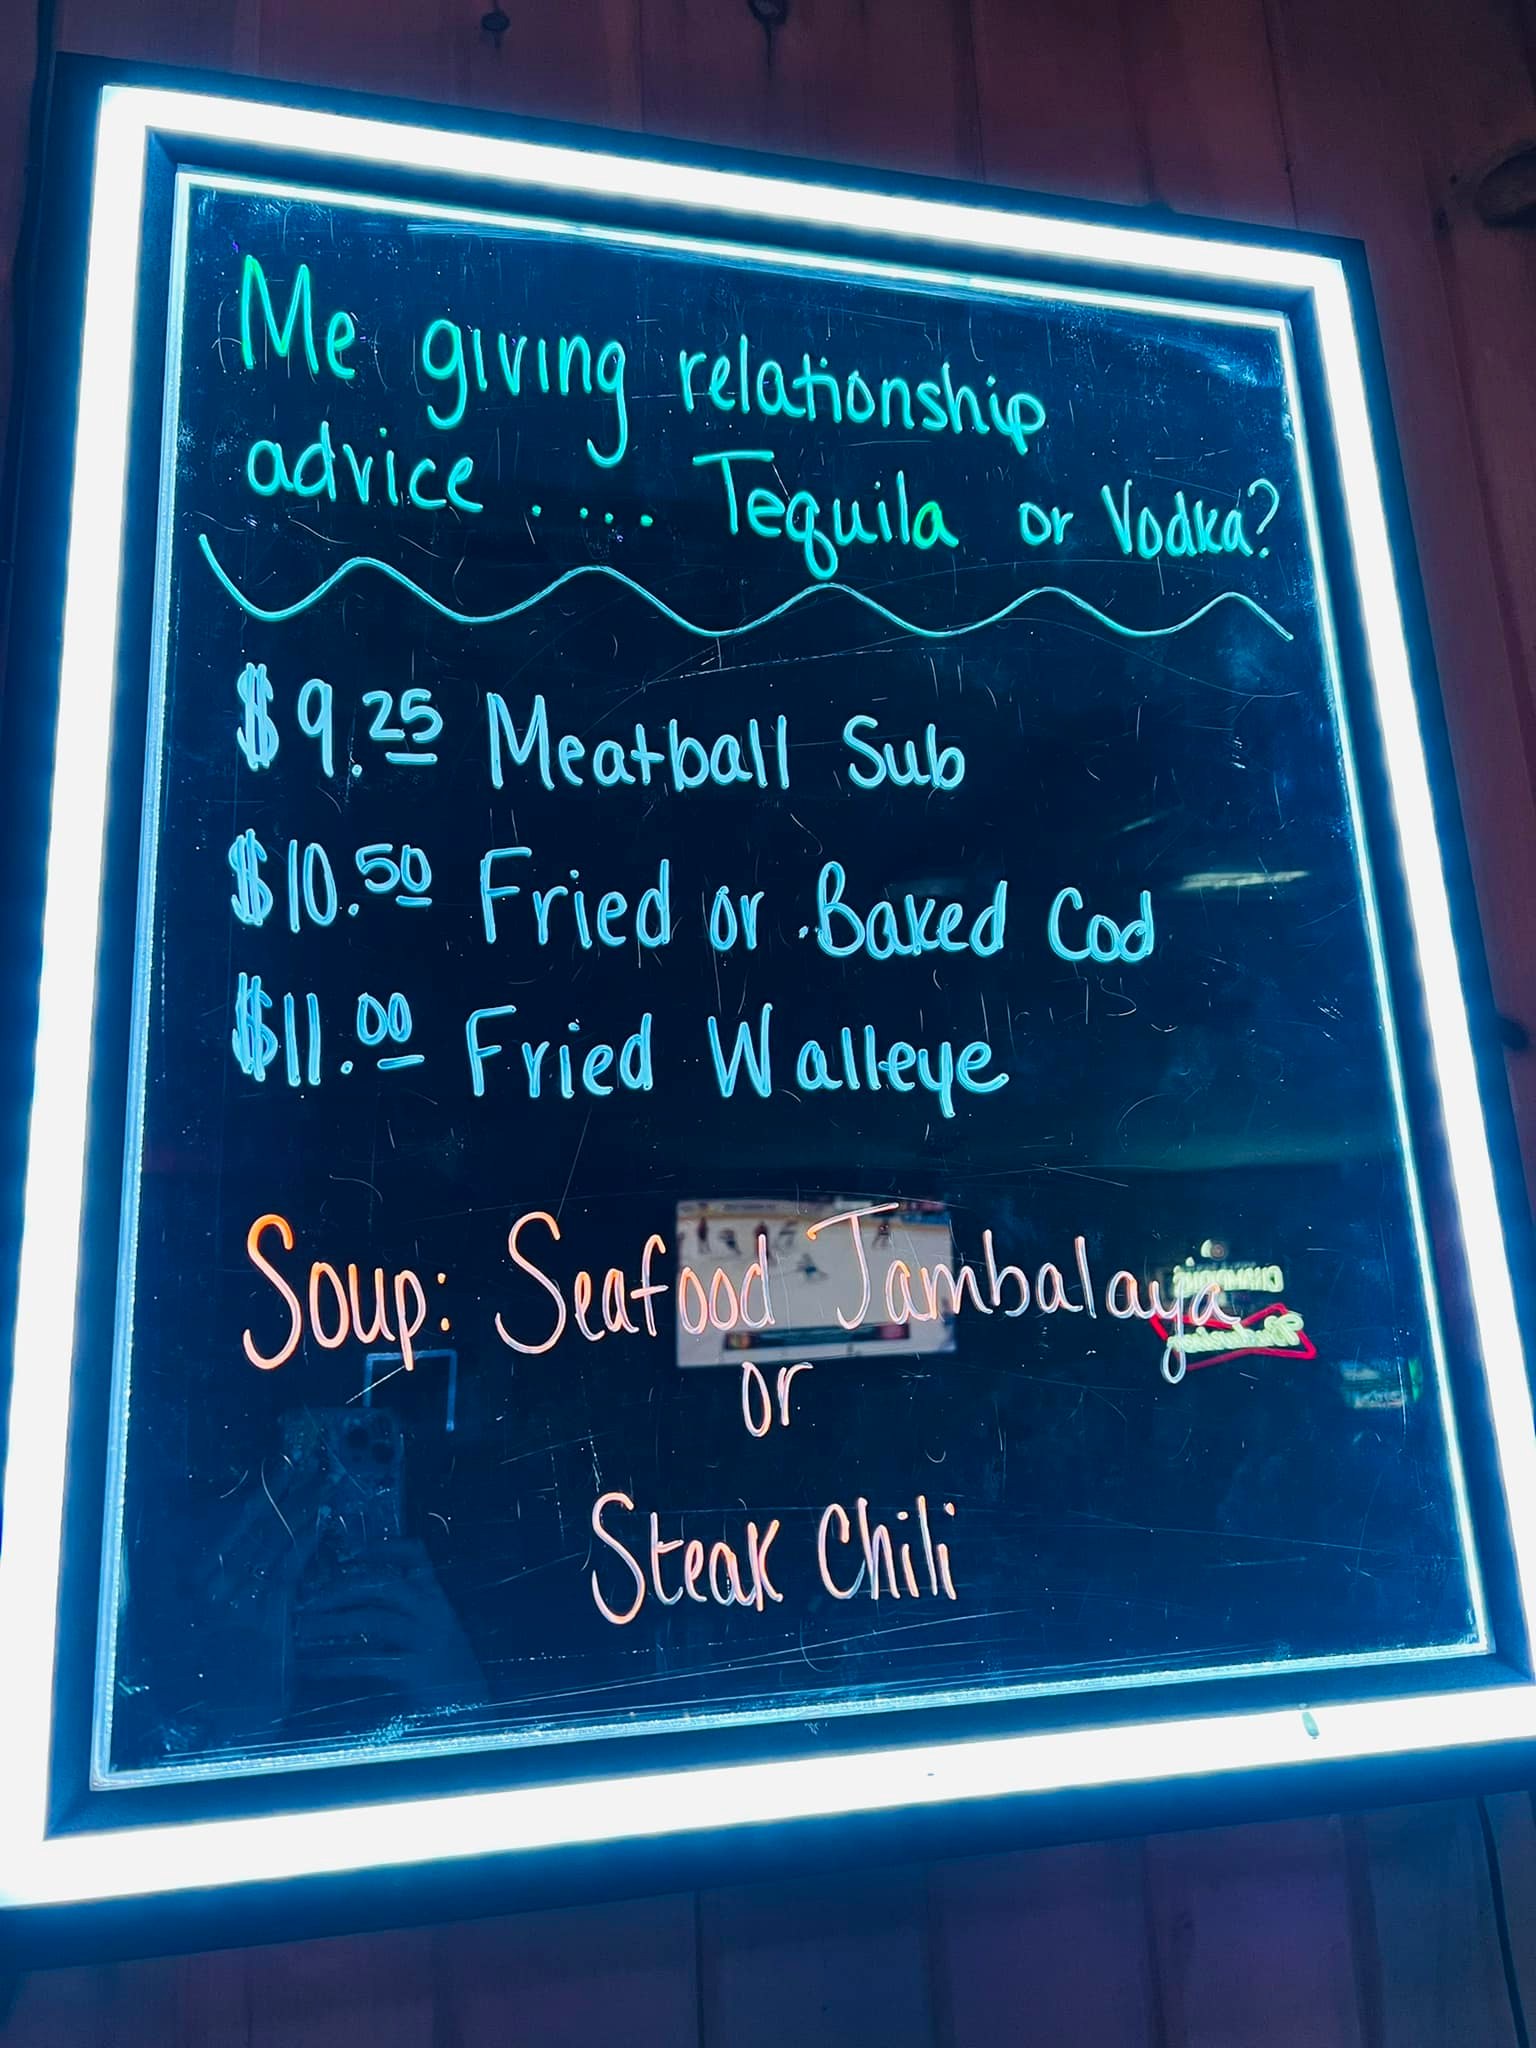 Me giving relationship
advice .... Tequila or Vodka?
$9.25 Meatball Sub
$10.50 Fried or Baked Cod
$11.00 Fried Walleye
Soup: Seafood Jambalaya
or
Steak Chili